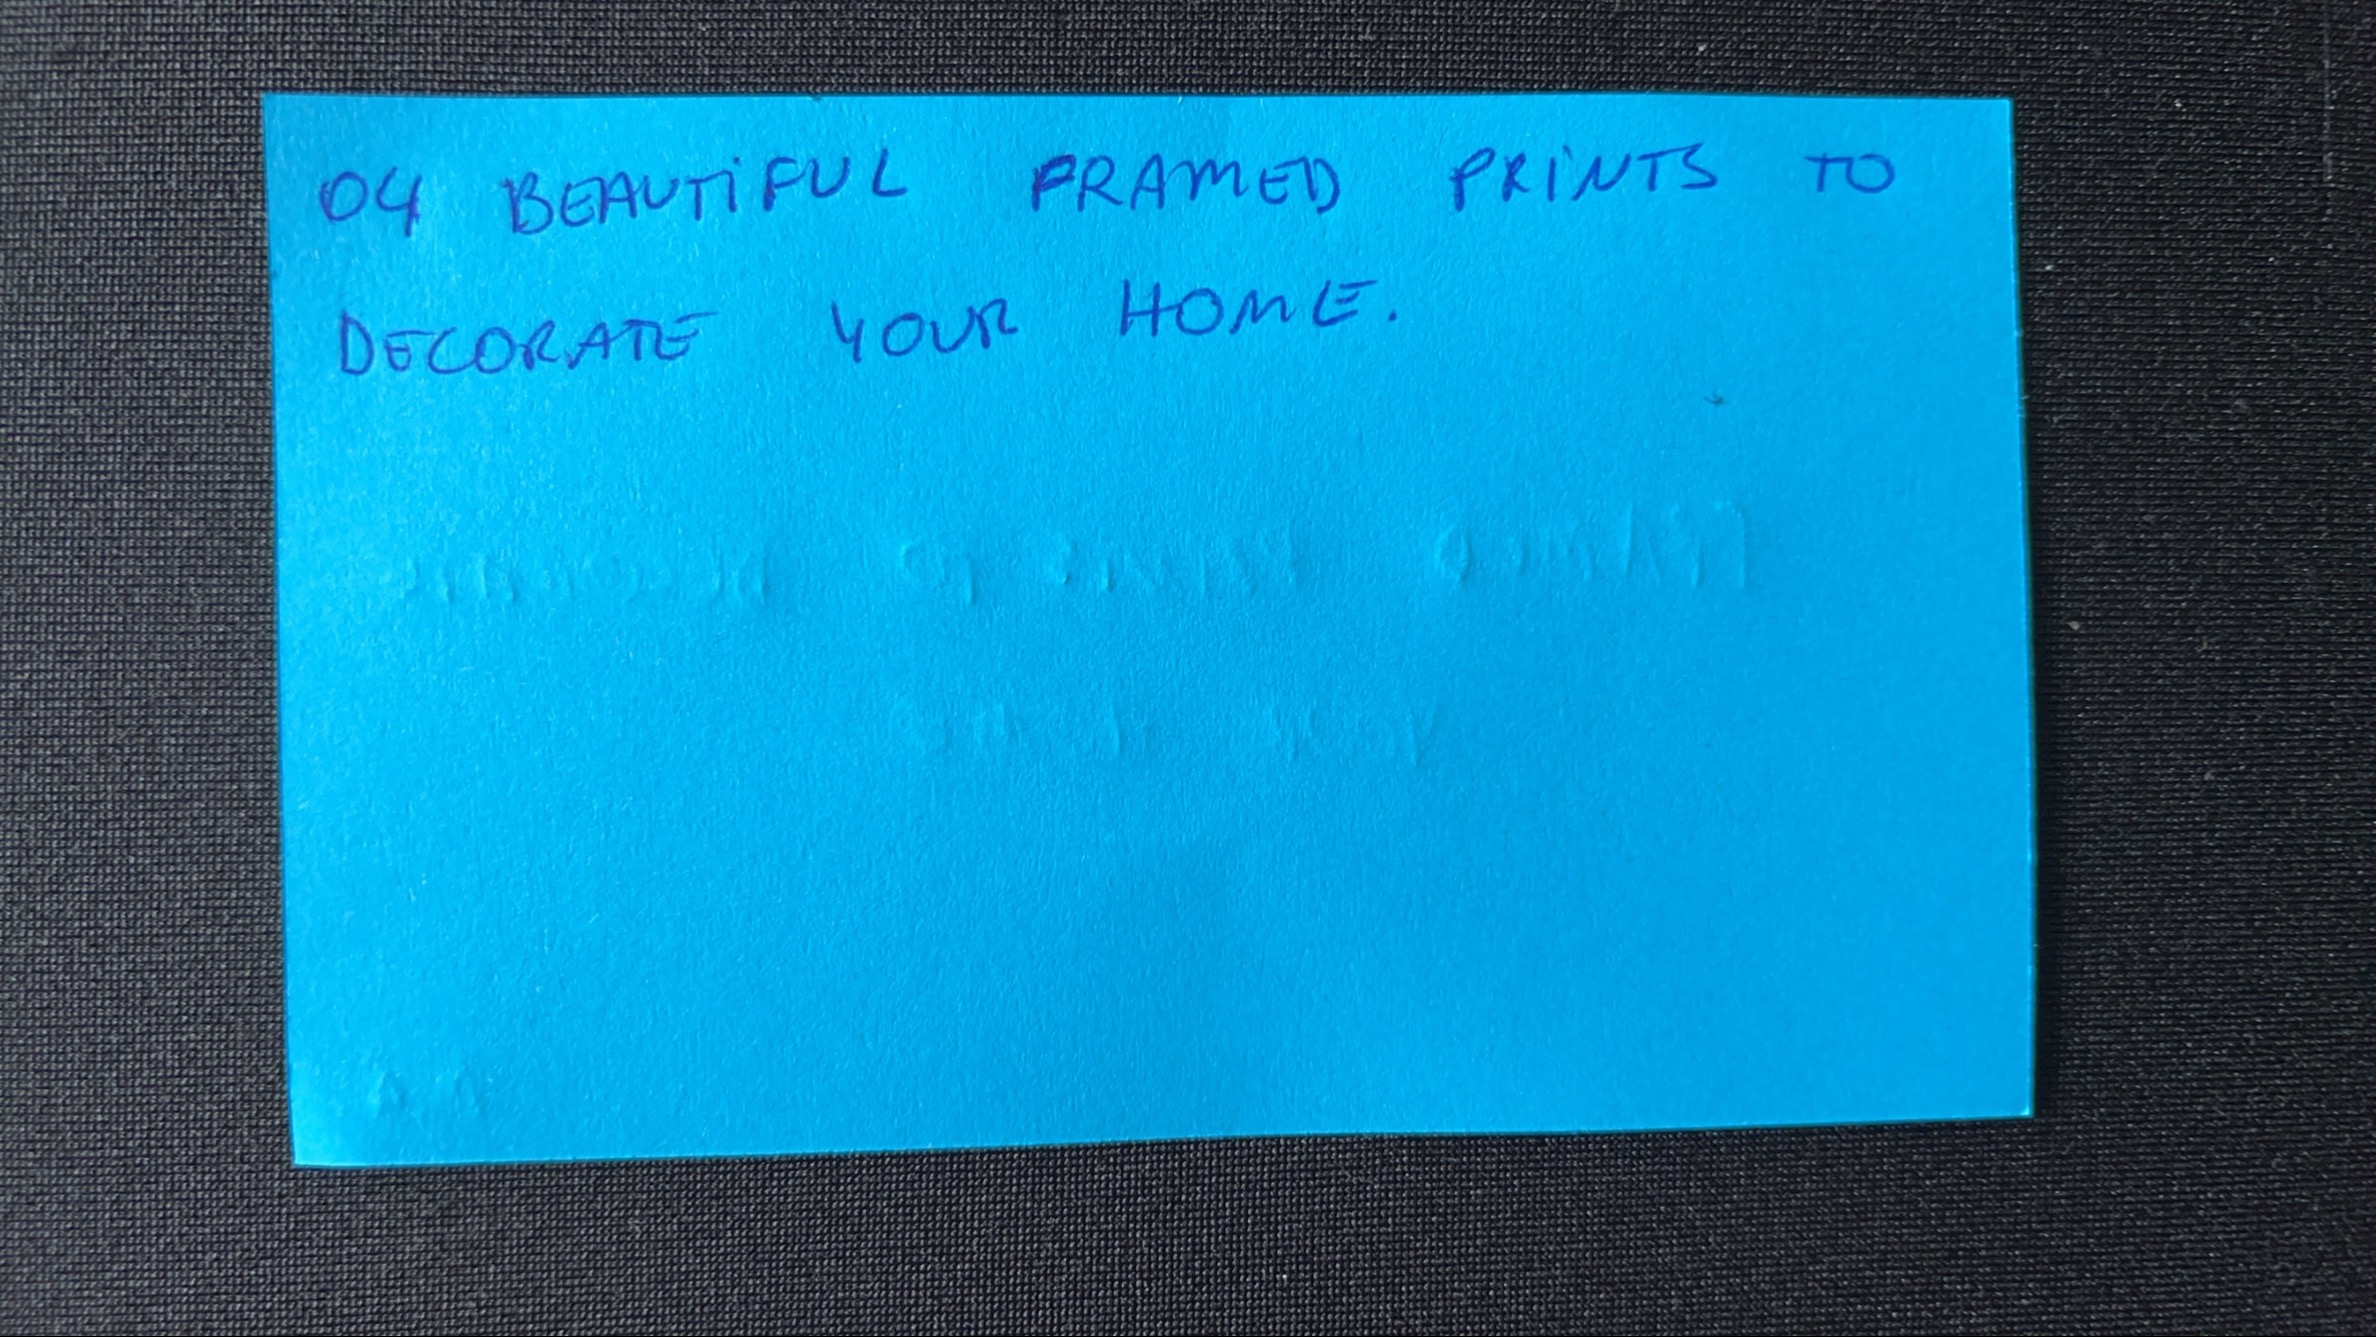 04 BEAUTiFUL FRAMED PRiNTS TO
DECORATE YOUR HOME.